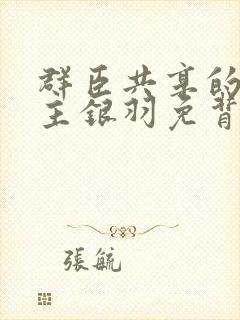 群臣共享的
主银羽免背
張毓